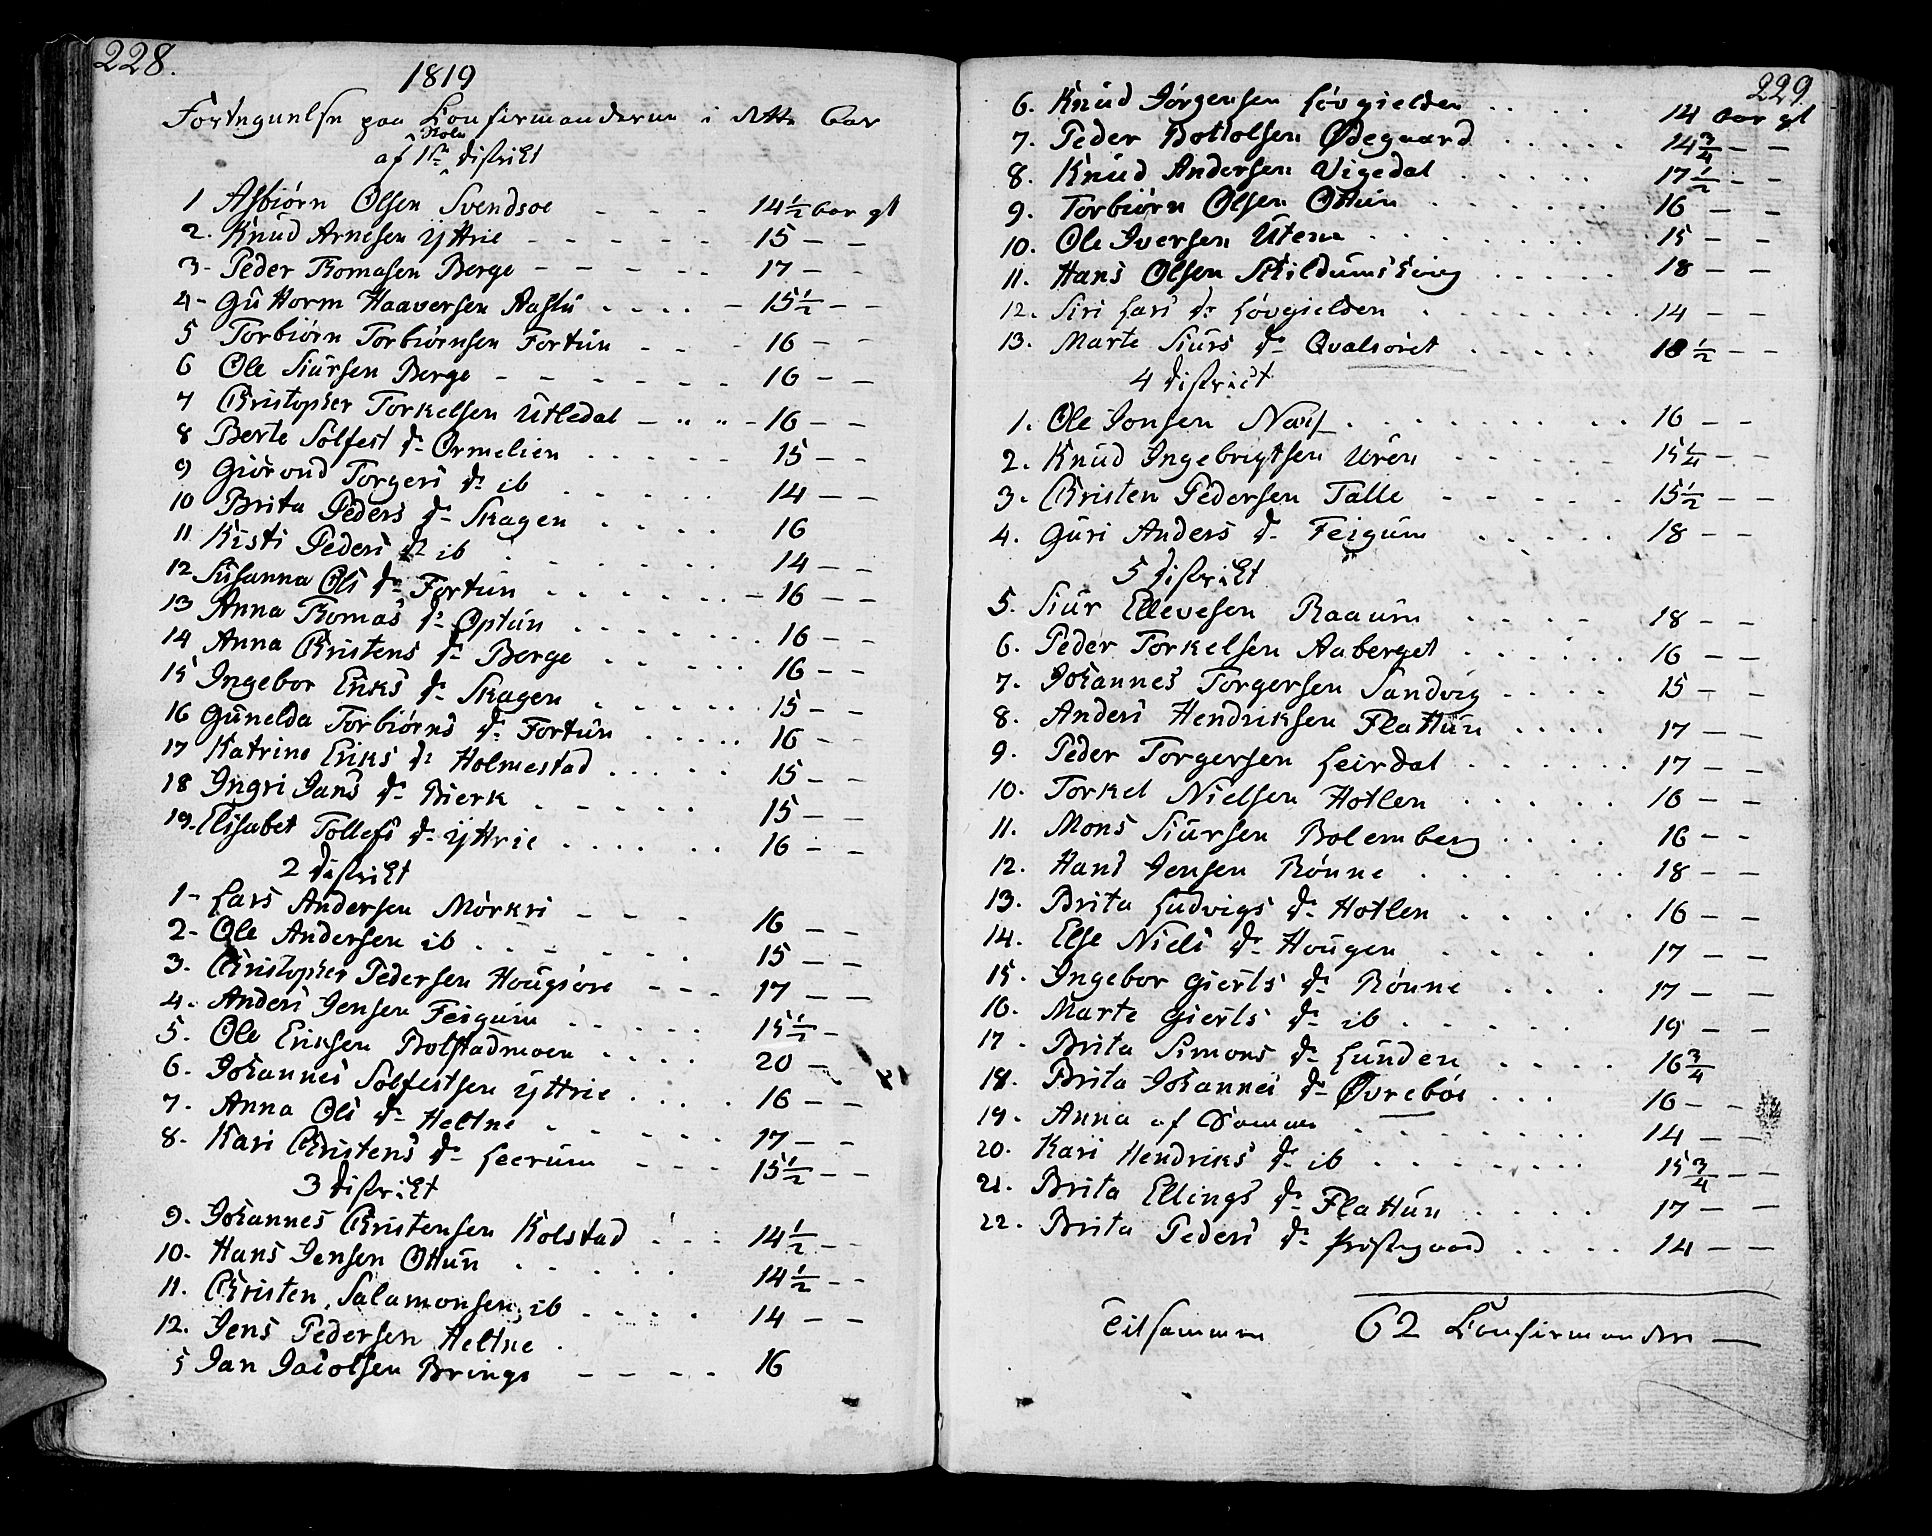 228.
1819
Fortegnelse paa Confirmanderne i dette Aar
Skole
af 1ste District
1 Asbiørn Olsen Svendsøe - - - 14 1/2 Aar gl
2. Knud Arnesen Yttrie - - - - - - 15 - -
3- Peder Thomasen Berge - - - - - - 17 - -
4- Guttorm Haaversen Aaslu . . . . - 15 1/2 - -
5 Torbiørn Torbiørnsen Fortun - - - 16 - -
6 Ole Siursen Berge - - - - - - 16 - -
7 Christopher Torkelsen Utledal - - - 16 - -
8 Berte Solfest dr Ormelien . . . . . 15 - -
9 Giørond Torgers dr ib . . . . . 14 - -
10 Brita Peders dr Skagen . . . . 16
11 Kisti Peders dr ib . . . . . . 14 - -
12 Susanna Ols dr Fortun . . . . . . - 16 - -
13 Anna Thomas dr Optun . . . . . . 16 - -
14 Anna Christens dr Berge . . . . . . 16 - -
15 Ingebor Eriks dr Skagen . . . . . . 15 - -
16 Gunelda Torbiørns dr Fortun . . . . . 16 - -
17 Katrine Eriks dr Holmestad . . . . . 15 - -
18 Ingri Jans dr Bierk . . . . . . 15 - -
19. Elisabet Tollefs dr Yttrie . . . . . . 16 - -
2 District
1- Lars Andersen Mørkri - - - 16 - -
2- Ole Andersen ib . . . . . . 15 - -
3. Christopher Pedersen Hougsøre - - - 17 - -
4. Anders Jensen Feigum . . . . . 15 1/2 -
5. Ole Eriksen Bolstadmoen . . . . 20 -
6. Johannes Solfestsen Yttrie . . . . 16 - -
7. Anna Ols dr Heltne . . . . . . 17 - -
8. Kari Christens dr Leerum - - - 15 1/2 - -
3 District
9. Johannes Christensen Kolstad . . . 14 1/2 - -
10. Hans Jensen Ottun . . . . . 14 1/2 - -
11. Christen Salamonsen ib . . . . 14 - -
12. Jens Pedersen Heltne .
5 Jan Jacobsen Bringe - - - - 16
229
6. Knud Jørgensen Løvgielden . . . . 14 Aar gl
7. Peder Bottolsen Ødegaard . . . . . 14 3/4 - -
8. Knud Andersen Vigedal . . . . . 17 1/2 - -
9. Torbiørn Olsen Ottun . . . . . . 16 - -
10. Ole Iversen Utene . . . . . . . 15 - -
11. Hans Olsen Skildumskeig . . . . . 18 - -
12. Siri Lars dr Løvgielden . . . . . . . 14 - -
13. Marte Siurs dr Qvalsøret . . . . . 18 1/2 - -
4 District
1. Ole Jonsen Næss . . . . . . . . 16 - -
2. Knud Ingebrigtsen Uren . . . . . 15 1/4 - -
3. Christen Pedersen Talle - - - - - 15 1/2 - -
4. Guri Anders dr Feigum . . . . . 18 - -
5 District
5. Siur Ellevesen Raaum . . . . 18 - -
6. Peder Torkelsen Aaberget . . . . . . 16 - -
7. Johannes Torgersen Sandvig . . . . 15 - -
8. Anders Hendriksen Flattun . . . . 17 - -
9. Peder Torgersen Leirdal . . . . . . 17 - -
10. Torkel Nielsen Hotlen . . . . . 16 - -
11. Mons Siursen Bolemberg . . . . 16 - -
12. Hans Jensen Rønne . . . . . . 18 - -
13. Brita Ludvigs dr Hotlen . . . . . 16 - -
14. Else Niels dr Hougen . . . . 17 - -
15. Ingebor Gierts dr Rønne . . . . 17 - -
16. Marte Gierts dr ib . . . . . 19 - -
17. Brita Simons dr Lunden . . . . 16 3/4
18. Brita Johannes dr Øvrebøe . . . 16 - -
19. Anna af . . . . . . . 14 - -
20. Kari Hendriks dr ib . . . . . . 15 3/4 - -
21. Brita Ellings dr Flattun . . . . . 17 - -
22. Brita Peders dr Præstegaard . . . . 14 - -
Tilsammen 62 Confirmander